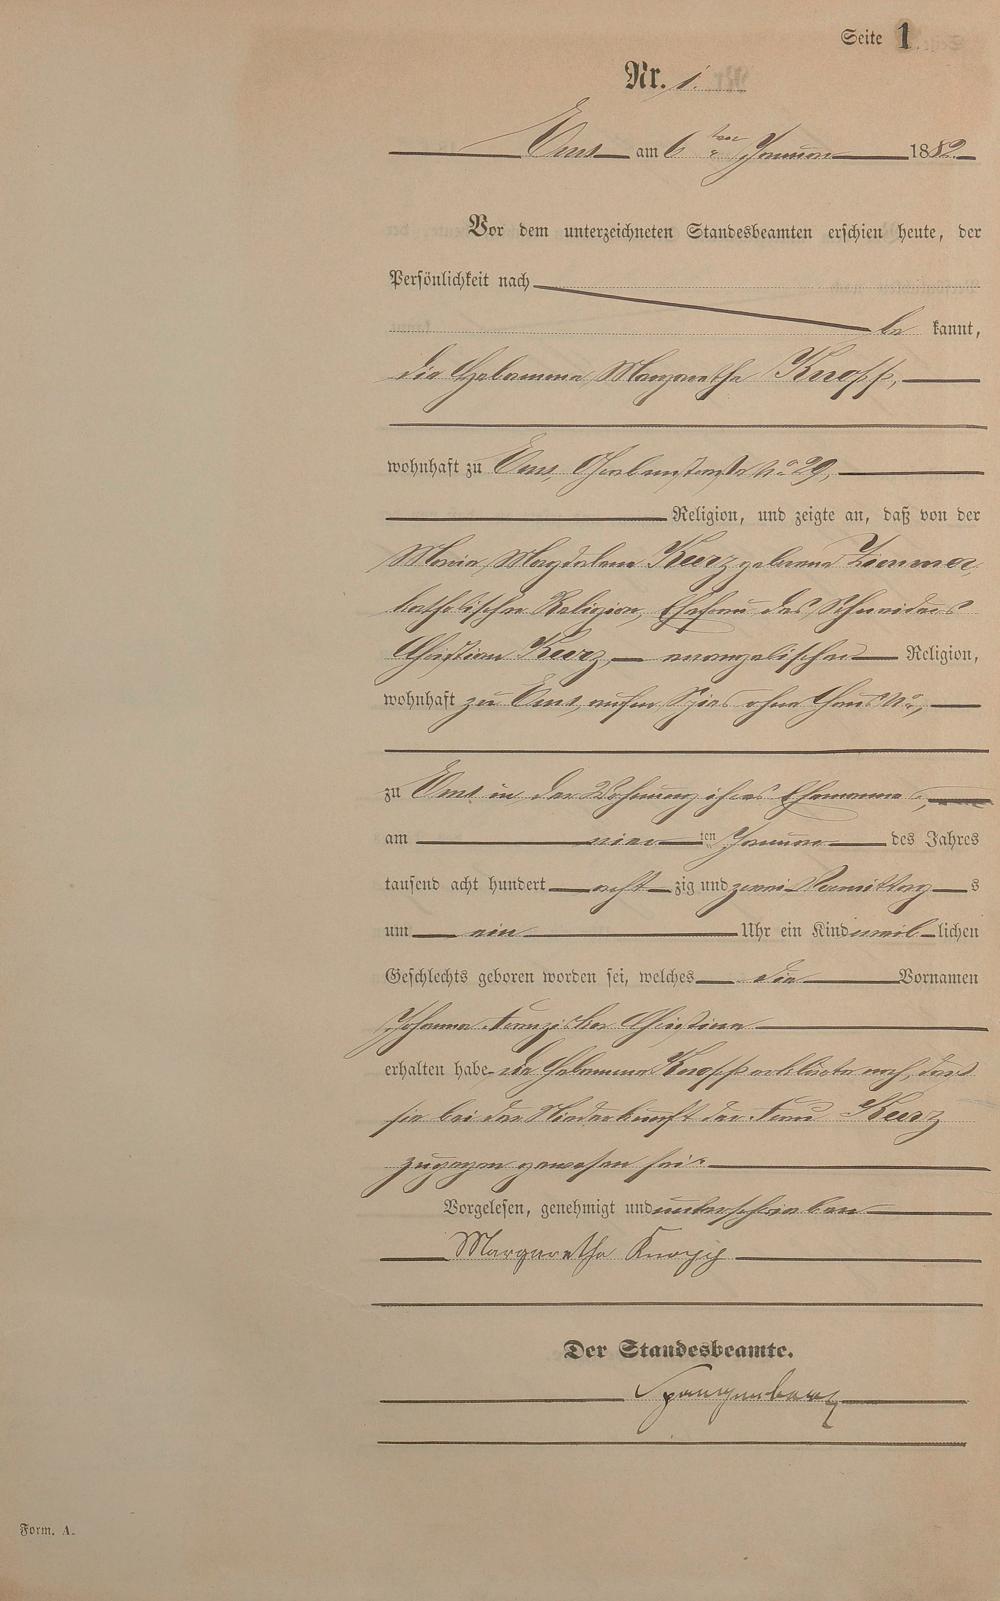 Seite 1.
Nr. 1.
Ems am 6ten Januar 1882
Vor dem unterzeichneten Standesbeamten erschien heute, der
Persönlichkeit nach
be kannt,
die Hebamme Margaretha Knopp,
wohnhaft zu Ems, No 29,
Religion, und zeigte an, daß von der
Maria Magdalena Kurz geborene Zimmer,
katholischer Religion, Ehefrau des Schneiders
Christian Kurz, evangelischer Religion,
wohnhaft zu Ems, auf'm Spies ohne Haus No,
zu Ems in der Wohnung ihres Ehemannes,
am vier ten Januar des Jahres
tausend acht hundert acht zig und zwei Vormittag s
um ein Uhr ein Kind weib lichen
Geschlechts geboren worden sei, welches die Vornamen
Johanna Franziska Christina
erhalten habe die Hebamme Knopp erklärte noch, dass
sie bei der Niederkunft der Frau Kurz
zugegen gewesen sei.
Vorgelesen, genehmigt und unterschrieben
Margaretha Knopp
Der Standesbeamte.
Spangenberg
Form. A.